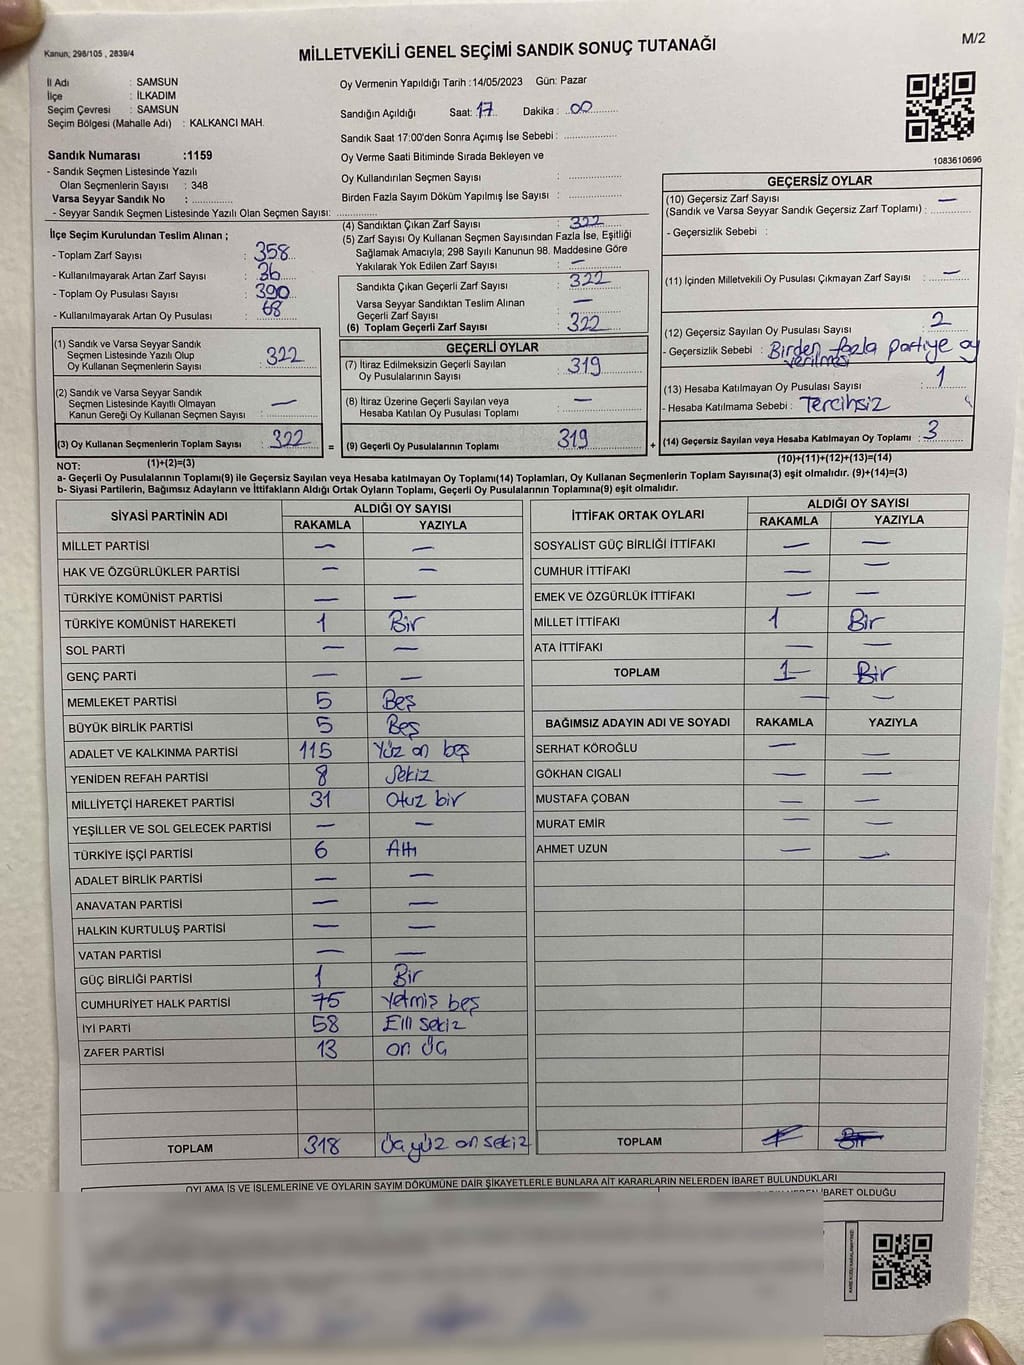 Kanun; 298/105 , 2839/4
MİLLETVEKİLİ GENEL SEÇİMİ SANDIK SONUÇ TUTANAĞI
M/2
İl Adı : SAMSUN
İlçe : İLKADIM
Seçim Çevresi : SAMSUN
Seçim Bölgesi (Mahalle Adı) : KALKANCI MAH.
Oy Vermenin Yapıldığı Tarih :14/05/2023 Gün: Pazar
Sandığın Açıldığı Saat: 17 Dakika : 00
Sandık Saat 17:00'den Sonra Açımış İse Sebebi :
Oy Verme Saati Bitiminde Sırada Bekleyen ve
Oy Kullandırılan Seçmen Sayısı :
Birden Fazla Sayım Döküm Yapılmış İse Sayısı :
1083610696
Sandık Numarası :1159
- Sandık Seçmen Listesinde Yazılı
Olan Seçmenlerin Sayısı : 348
Varsa Seyyar Sandık No :
- Seyyar Sandık Seçmen Listesinde Yazılı Olan Seçmen Sayısı:
İlçe Seçim Kurulundan Teslim Alınan ;
- Toplam Zarf Sayısı : 358
- Kullanılmayarak Artan Zarf Sayısı : 36
- Toplam Oy Pusulası Sayısı : 390
- Kullanılmayarak Artan Oy Pusulası : 68
(1) Sandık ve Varsa Seyyar Sandık
Seçmen Listesinde Yazılı Olup
Oy Kullanan Seçmenlerin Sayısı : 322
(2) Sandık ve Varsa Seyyar Sandık
Seçmen Listesinde Kayıtlı Olmayan
Kanun Gereği Oy Kullanan Seçmen Sayısı : —
(3) Oy Kullanan Seçmenlerin Toplam Sayısı : 322 =
(4) Sandıktan Çıkan Zarf Sayısı : 322
(5) Zarf Sayısı Oy Kullanan Seçmen Sayısından Fazla İse, Eşitliği
Sağlamak Amacıyla; 298 Sayılı Kanunun 98. Maddesine Göre
Yakılarak Yok Edilen Zarf Sayısı : —
Sandıkta Çıkan Geçerli Zarf Sayısı : 322
Varsa Seyyar Sandıktan Teslim Alınan
Geçerli Zarf Sayısı : —
(6) Toplam Geçerli Zarf Sayısı : 322
GEÇERLİ OYLAR
(7) İtiraz Edilmeksizin Geçerli Sayılan
Oy Pusulalarının Sayısı : 319
(8) İtiraz Üzerine Geçerli Sayılan veya
Hesaba Katılan Oy Pusulası Toplamı : —
(9) Geçerli Oy Pusulalarının Toplamı 319 +
GEÇERSİZ OYLAR
(10) Geçersiz Zarf Sayısı
(Sandık ve Varsa Seyyar Sandık Geçersiz Zarf Toplamı) : —
- Geçersizlik Sebebi :
(11) İçinden Milletvekili Oy Pusulası Çıkmayan Zarf Sayısı : —
(12) Geçersiz Sayılan Oy Pusulası Sayısı : 2
- Geçersizlik Sebebi : Birden fazla partiye oy
verilmesi
(13) Hesaba Katılmayan Oy Pusulası Sayısı : 1
- Hesaba Katılmama Sebebi : Tercihsiz
(14) Geçersiz Sayılan veya Hesaba Katılmayan Oy Toplamı : 3
NOT: (1)+(2)=(3)
(10)+(11)+(12)+(13)=(14)
a- Geçerli Oy Pusulalarının Toplamı(9) ile Geçersiz Sayılan veya Hesaba katılmayan Oy Toplamı(14) Toplamları, Oy Kullanan Seçmenlerin Toplam Sayısına(3) eşit olmalıdır. (9)+(14)=(3)
b- Siyasi Partilerin, Bağımsız Adayların ve İttifakların Aldığı Ortak Oyların Toplamı, Geçerli Oy Pusulalarının Toplamına(9) eşit olmalıdır.
SİYASİ PARTİNİN ADI ALDIĞI OY SAYISI
RAKAMLA YAZIYLA
MİLLET PARTİSİ — —
HAK VE ÖZGÜRLÜKLER PARTİSİ — —
TÜRKİYE KOMÜNİST PARTİSİ — —
TÜRKİYE KOMÜNİST HAREKETİ 1 Bir
SOL PARTİ — —
GENÇ PARTİ — —
MEMLEKET PARTİSİ 5 Beş
BÜYÜK BİRLİK PARTİSİ 5 Beş
ADALET VE KALKINMA PARTİSİ 115 Yüz on beş
YENİDEN REFAH PARTİSİ 8 Sekiz
MİLLİYETÇİ HAREKET PARTİSİ 31 Otuz bir
YEŞİLLER VE SOL GELECEK PARTİSİ — —
TÜRKİYE İŞÇİ PARTİSİ 6 Altı
ADALET BİRLİK PARTİSİ — —
ANAVATAN PARTİSİ — —
HALKIN KURTULUŞ PARTİSİ — —
VATAN PARTİSİ — —
GÜÇ BİRLİĞİ PARTİSİ 1 Bir
CUMHURİYET HALK PARTİSİ 75 Yetmiş beş
İYİ PARTİ 58 Elli sekiz
ZAFER PARTİSİ 13 on üç
TOPLAM 318 Üç yüz on sekiz
İTTİFAK ORTAK OYLARI ALDIĞI OY SAYISI
RAKAMLA YAZIYLA
SOSYALİST GÜÇ BİRLİĞİ İTTİFAKI — —
CUMHUR İTTİFAKI — —
EMEK VE ÖZGÜRLÜK İTTİFAKI — —
MİLLET İTTİFAKI 1 Bir
ATA İTTİFAKI — —
TOPLAM 1 Bir
— —
BAĞIMSIZ ADAYIN ADI VE SOYADI RAKAMLA YAZIYLA
SERHAT KÖROĞLU — —
GÖKHAN CIGALI — —
MUSTAFA ÇOBAN — —
MURAT EMİR — —
AHMET UZUN — —
TOPLAM 1 Bir
OYLAMA İŞ VE İŞLEMLERİNE VE OYLARIN SAYIM DÖKÜMÜNE DAİR ŞİKAYETLERLE BUNLARA AİT KARARLARIN NELERDEN İBARET BULUNDUKLARI
İBARET OLDUĞU